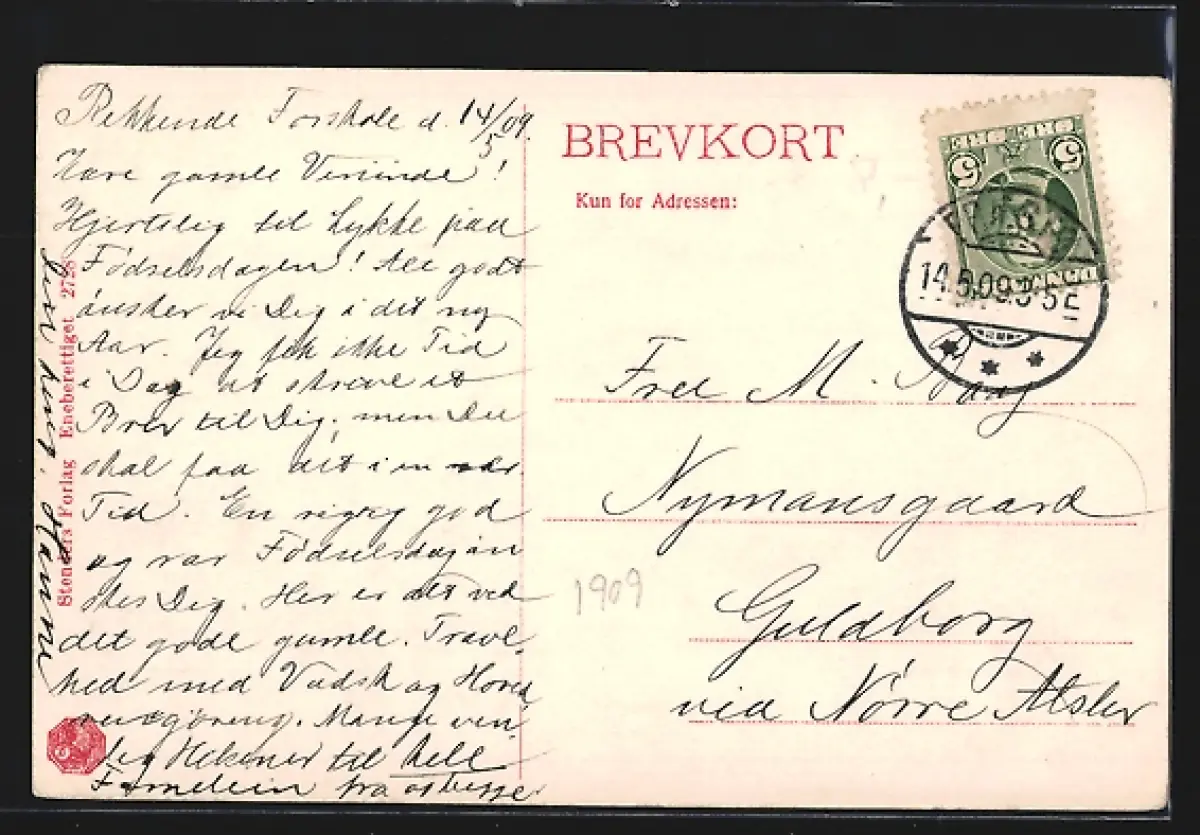 Forskole d. 14/5 09.
Kære gamle Veninde!
Hjertelig til Lykke paa
Fødselsdagen! Alt godt
ønsker vi Dig i det ny
Aar. Jeg fik ikke Tid
i Dag at skrive et
Brev til Dig, men Du
skal faa det i en nær
Tid. En rigtig god
og rar Fødselsdag øn
skes Dig. Her er alt ved
det gode gamle. Travl
hed med Vadsk og Hoved
rengøring. Mange ven
lig Hilsner til hele
Familien fra os begge
Din heng. Hanne
Stenders Forlag Eneberettiget 2728
BREVKORT
Kun for Adressen:
5 5
DANMARK
14.5.09. 3-5 E
Frøl M.
Nymansgaard
Guldborg
via Nørre Alslev
1909